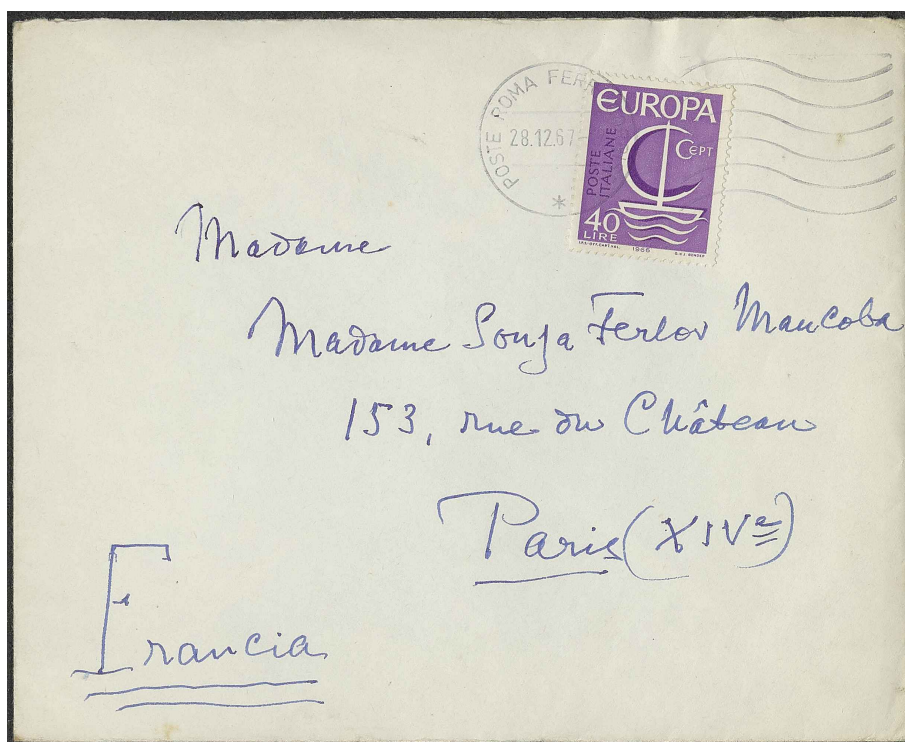 POSTE ROMA FERR
28.12.67
EUROPA
CEPT
POSTE
ITALIANE
40
LIRE
1966
Madame
Madame Sonja Ferlov Mancoba
153, rue du Château
Paris (XIVe)
Francia